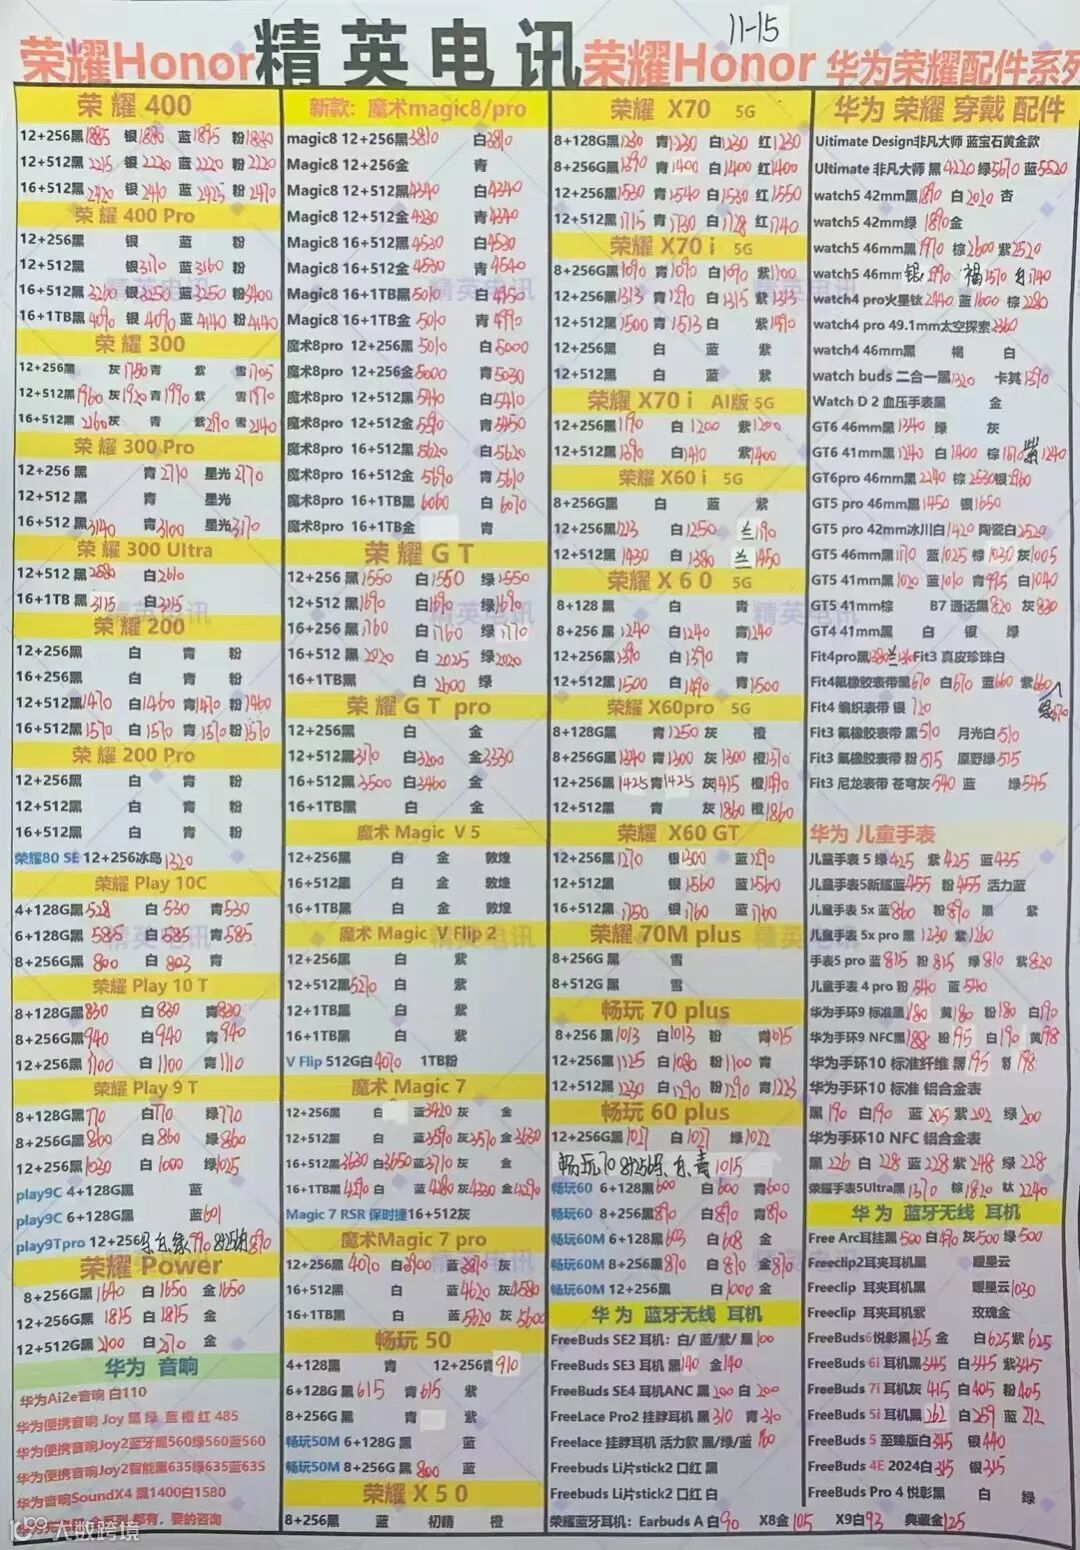 11-15
荣耀Honor 精英电讯 荣耀Honor 华为荣耀配件系列
荣耀 400
12+256黑1885 银1880 蓝1895 粉1880
12+512黑2215 银2220 蓝2220 粉2220
16+512黑2420 银2410 蓝2425 粉2470
荣耀 400 Pro
12+256黑 银 蓝 粉
12+512黑 银3170 蓝3160 粉
16+512黑3260 银3250 蓝3250 粉3400
16+1TB黑4090 银4090 蓝4140 粉4140
荣耀 300
12+256黑 灰1750青 紫 雪1705
12+512黑1960 灰1920青1990 紫 雪1970
16+512黑2160灰 青 紫2190 雪2140
荣耀 300 Pro
12+256 黑 青2710 星光2770
12+512 黑 青 星光
16+512 黑3140 青3100 星光3170
荣耀 300 Ultra
12+512 黑2580 白2610
16+1TB 黑3115 白3115
荣耀 200
12+256黑 白 青 粉
16+256黑 白 青 粉
12+512黑1470 白1460 青1470 粉1460
16+512黑1570 白1570 青1570 粉1570
荣耀 200 Pro
12+256黑 白 青 粉
12+512黑 白 青 粉
16+512黑 白 青 粉
荣耀80 SE 12+256冰岛1320
荣耀 Play 10C
4+128G黑528 白530 青530
6+128G黑585 白585 青585
8+256G黑 800 白 803 青
荣耀 Play 10 T
8+128G黑830 白830 青830
8+256G黑940 白940 青940
12+256黑1100 白1100 青1110
荣耀 Play 9 T
8+128G黑770 白770 绿770
8+256G黑860 白860 绿860
12+256黑1030 白1000 绿1025
play9C 4+128G黑 蓝
play9C 6+128G黑 蓝601
play9Tpro 12+256
荣耀 Power
8+256G黑1640 白1650 金1650
12+256G黑1815 白1815 金
12+512G黑2100 白2170 金
华为 音响
华为Ai2e音响 白110
华为便携音响 Joy 黑 绿 蓝 橙 红 485
华为便携音响Joy2蓝牙黑560绿560蓝560
华为便携音响Joy2智能黑635绿635蓝635
华为音响SoundX4 黑1400白1580
都有，要的咨询
大数跨境
新款：魔术magic8/pro
magic8 12+256黑3810 白3810
Magic8 12+256金 青
Magic8 12+512黑4340 白4340
Magic8 12+512金4230 青4340
Magic8 16+512黑4530 白4530
Magic8 16+256金4530 青4540
Magic8 16+1TB黑5010 白4950
Magic8 16+1TB金 5010 青4990
魔术8pro 12+256黑 5010 白5000
魔术8pro 12+256金5000 青5030
魔术8pro 12+512黑5440 白5410
魔术8pro 12+512金5390 青5450
魔术8pro 16+512黑5620 白5620
魔术8pro 16+512金 5690 青5610
魔术8pro 16+1TB黑6060 白6070
魔术8pro 16+1TB金 青
荣耀 G T
12+256 黑1550 白1550 绿1550
12+512 黑1690 白1690 绿1690
16+256 黑1760 白1760 绿1770
16+512 黑2020 白2025 绿2020
16+1TB黑 白2600 绿
荣耀 G T pro
12+256黑 白 金
12+512黑3170 白3200 金3330
16+512黑3500 白3460 金
16+1TB黑 白 金
魔术 Magic V 5
12+256黑 白 金 敦煌
16+512黑 白 金 敦煌
16+1TB黑 白 金 敦煌
魔术 Magic V Flip 2
12+256黑 白 紫
12+512黑5210 白 紫
12+1TB黑 白 紫
16+1TB黑 白 紫
V Flip 512G白4070 1TB粉
魔术 Magic 7
12+256黑 白 蓝3420 灰 金
12+512黑 白 蓝3590 灰3570 金3630
16+512黑3630 白3650蓝3710灰 金
16+1TB黑4270白 蓝4280 灰4230 金4290
Magic 7 RSR 保时捷16+512灰
魔术Magic 7 pro
12+256黑 4070 白3900 蓝3890 灰
16+512黑 白 蓝4620 灰4580
16+1TB黑 白 蓝5620 灰5600
畅玩 50
4+128黑 青 12+256青910
6+128G 黑615 青615 紫
8+256G 黑 青 紫
畅玩50M 6+128G 黑 蓝
畅玩50M 8+256G 黑800 蓝
荣耀 X 5 0
8+256黑 蓝 初晴 橙
荣耀 X70 5G
8+128G黑1230 青1230 白1230 红1230
8+256G黑1390 青1400 白1400 红1400
12+256黑1530 青1540 白1530 红1550
12+512黑1715 青1730 白1728 红1740
荣耀 X70 i 5G
8+256G黑1090 青1090 白1090 紫1100
12+256黑1313 青1290 白1315 紫1313
12+512黑1500 青1513 白 紫1490
12+256黑 白 蓝 紫
12+512黑 白 蓝 紫
荣耀 X70 i AI版 5G
12+256黑1190 白1200 紫1200
12+512黑1390 白1410 紫1400
荣耀 X60 i 5G
8+256G黑 白 蓝 紫
12+256黑1213 白1250 兰1190
12+512黑1430 白1380 兰1450
荣耀 X 6 0 5G
8+128 黑 白 青
8+256 黑1240 白1240 青1240
12+256黑1390 白1390 青
12+512黑1500 白1490 青1500
荣耀 X60pro 5G
8+128G黑 青1250 灰 橙
8+256G黑1340 青1300 灰1300 橙1370
12+256黑1425青1425 灰1415 橙1490
12+512黑 青 灰1860 橙1860
荣耀 X60 GT
12+256黑1270 银1300 蓝1290
12+512黑 银1560 蓝1560
16+512黑1750 银1760 蓝1760
荣耀 70M plus
8+256G黑 雪
8+512G黑 雪
畅玩 70 plus
8+256 黑1013 白1013 粉 青1015
12+256黑1125 白1080 粉1100 青
12+512黑1230 白1290 粉1290 青1223
畅玩 60 plus
12+256G黑1027 白1027 绿1022
畅玩70 8+256 青1015
畅玩60 6+128黑600 白600 青600
畅玩60 8+256黑890 白890 青890
畅玩60M 6+128黑603 白608 金
畅玩60M 8+256黑870 白810 金810
畅玩60M 12+256黑 白1000 金
华为 蓝牙无线 耳机
FreeBuds SE2 耳机：白/ 蓝/紫/ 黑100
FreeBuds SE3 耳机 黑140 金140
FreeBuds SE4 耳机ANC 黑200 白 200
FreeLace Pro2 挂脖耳机 黑310 青310
Freelace 挂脖耳机 活力款 黑/绿/蓝160
Freebuds Li片stick2 口红 黑
Freebuds Li片stick2 口红 白
荣耀蓝牙耳机：Earbuds A 白90 X8金 105 X9白93 典藏金125
华为 荣耀 穿戴 配件
Uitimate Design非凡大师 蓝宝石黄金款
Ultimate 非凡大师 黑4220 绿5670 蓝5520
watch5 42mm黑1890 白2020 杏
watch5 42mm绿 1890金
watch5 46mm黑1970 棕2600 紫2520
watch5 46mm
watch4 pro火星钛2440 蓝1600 棕2280
watch4 pro 49.1mm太空探索2360
watch4 46mm黑 褐 白
watch buds 二合一黑1320 卡其1390
Watch D 2 血压手表黑 金
GT6 46mm黑1340 绿 灰
GT6 41mm黑1240 白1400 棕1670 紫1240
GT6pro 46mm黑2240 棕2530银2960
GT5 pro 46mm黑1450 银1650
GT5 pro 42mm冰川白1420 陶瓷白2520
GT5 46mm黑1170 蓝1025 棕1030灰1005
GT5 41mm黑1020 蓝1010 青995 白1040
GT5 41mm棕 B7 通话黑820 灰830
GT4 41mm黑 白 银 绿
Fit4pro黑1380兰1360Fit3 真皮珍珠白
Fit4氟橡胶表带黑670 白670 蓝660 紫660
Fit4 编织表带 银 720
Fit3 氟橡胶表带 黑510 月光白510
Fit3 氟橡胶表带 粉515 原野绿515
Fit3 尼龙表带 苍穹灰540 蓝 绿545
华为 儿童手表
儿童手表 5 绿425 紫425 蓝435
儿童手表5新耀蓝455 粉455 活力蓝
儿童手表 5x 蓝860 粉890 黑 紫
儿童手表 5x pro 黑 1230 紫1260
手表5 pro 蓝815 粉815 绿810 紫820
儿童手表 4 pro 粉540 蓝540
华为手环9 标准黑180 黄180 粉180 白190
华为手环9 NFC黑188 粉195 白190 黄198
华为手环10 标准纤维 黑195 粉198
华为手环10 标准 铝合金表
黑 190 白190 蓝 205 紫202 绿200
华为手环10 NFC 铝合金表
黑 226 白 228 蓝228 紫248 绿 228
荣耀手表5Ultra黑1370 棕1820 钛 2240
华为 蓝牙无线 耳机
Free Arc耳挂黑500 白490 灰500 绿500
Freeclip2耳夹耳机黑 暖星云
Freeclip 耳夹耳机黑 暖星云1030
Freeclip 耳夹耳机紫 玫瑰金
FreeBuds6悦彰黑625 金 白625 紫625
FreeBuds 6i 耳机黑345 白345 紫345
FreeBuds 7i 耳机灰 415 白405 粉405
FreeBuds 5i 耳机黑262 白259 蓝272
FreeBuds 5 至臻版白345 银440
FreeBuds 4E 2024白315 银315
FreeBuds Pro 4 悦彰黑 白 绿